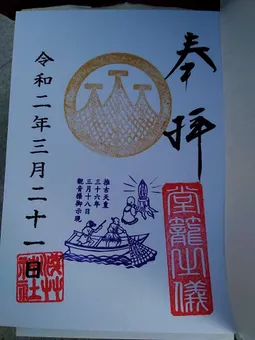 奉拝
推古天皇
三十六年
三月十八日
観音様御示現
堂籠之儀
令和二年三月二十一日
浅草
神社